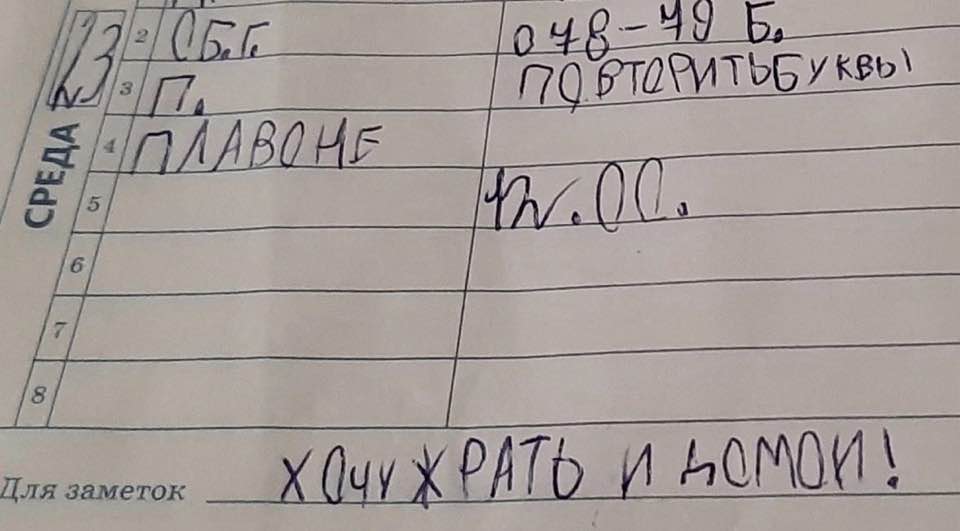 СРЕДА
23
2 ОБ.Г. 048-49 Б.
3 П. ПОВТОРИТЬБУКВЫ
4 ПЛАВОНЕ
5 12.00.
6
7
8
Для заметок ХОЧУ ЖРАТЬ И ДОМОИ!